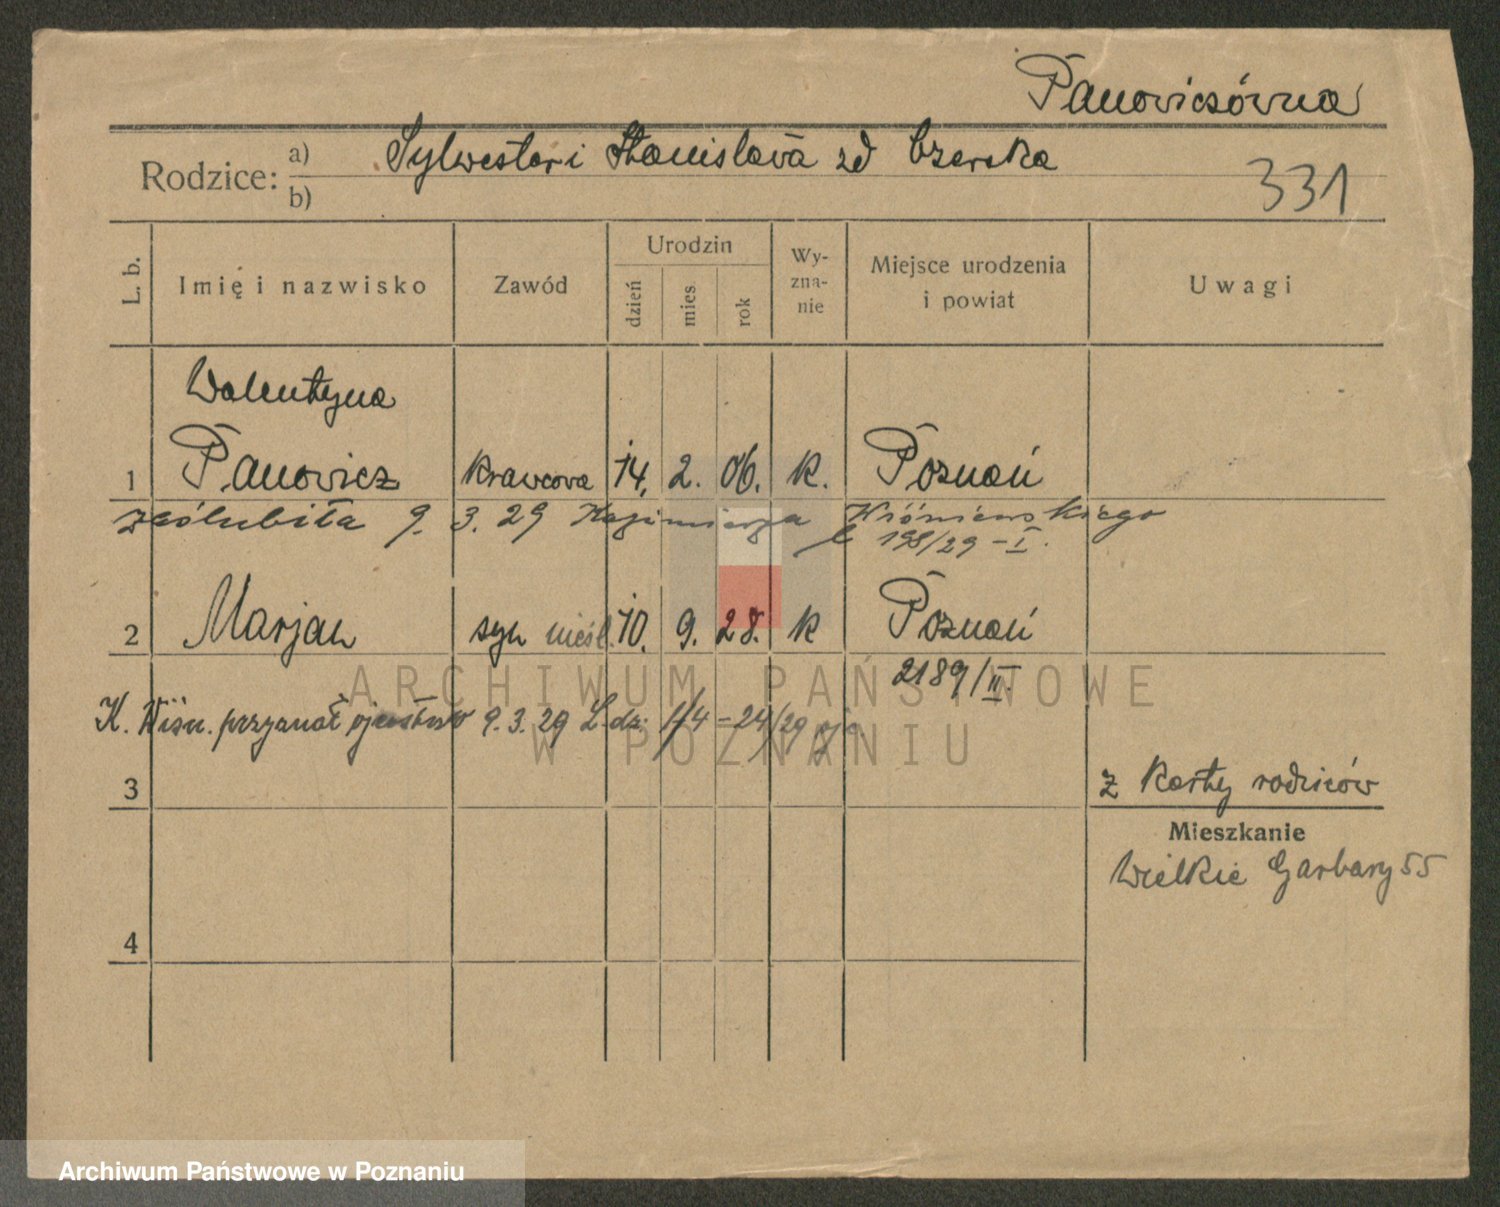 Panowiczówna
Rodzice: a) Sylwester i Stanisława zd Czerska
b)
331
L. b. Imię i nazwisko Zawód Urodzin dzień mies rok Wy-zna-nie Miejsce urodzenia i powiat Uwagi
Walentyna
1 Panowicz krawcowa 14. 2. 06. k. Poznań
zaślubiła 9. 3. 29 Kazimierza Wiśniewskiego
198/29 - I.
2 Marjan syn nieśl. 10. 9. 28. k Poznań
2189/II.
K. Wiśn. przyznał ojcostwo 9.3.29 L. dz. 1/4 - 24/29
3
z karty rodziców
Mieszkanie
Wielkie Garbary 55
4
ARCHIWUM PAŃSTWOWE
W POZNANIU
Archiwum Państwowe w Poznaniu